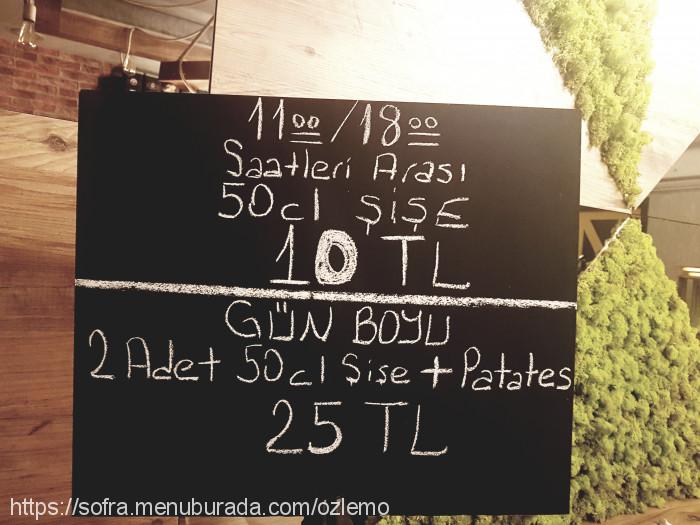 11⁰⁰/18⁰⁰
Saatleri Arası
50cl ŞİŞE
10 TL
GÜN BOYU
2 Adet 50cl Sise + Patates
25 TL
https://sofra.menuburada.com/ozlemo